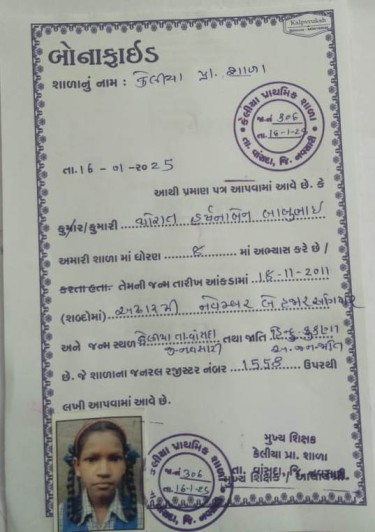 Kalpvruksh
બોનાફાઈડ
શાળાનું નામ : કેલીયા પ્રા. શાળા
કેલીયા પ્રાથમિક શાળા
જા.નં 306
તા. 16-1-25
તા. વાંસદા, જિ. નવસારી
તા. 16 - 01 - 2025
આથી પ્રમાણ પત્ર આપવામાં આવે છે. કે
કુમાર/કુમારી બાબુભાઈ
અમારી શાળા માં ધોરણ ૮ માં અભ્યાસ કરે છે /
કરતા હતા. તેમની જન્મ તારીખ આંકડામાં ૧૮-11-2011
(શબ્દોમાં) અઢારમી નવેમ્બર બે હજાર અગિયાર
અને જન્મ સ્થળ કેલીયા તા.વાંસદા તથા જાતિ હિન્દુ કુકણા
જી.નવસારી અ.જન.જાતિ
છે. જે શાળાના જનરલ રજીસ્ટર નંબર 1558 ઉપરથી
લખી આપવામાં આવે છે.
કેલીયા પ્રાથમિક શાળા
જા.નં 306
તા. 16-1-25
મુખ્ય શિક્ષક
કેલીયા પ્રા. શાળા
તા. વાંસદા, જિ. નવસારી
મુખ્ય શિક્ષક / આચાર્યશ્રી